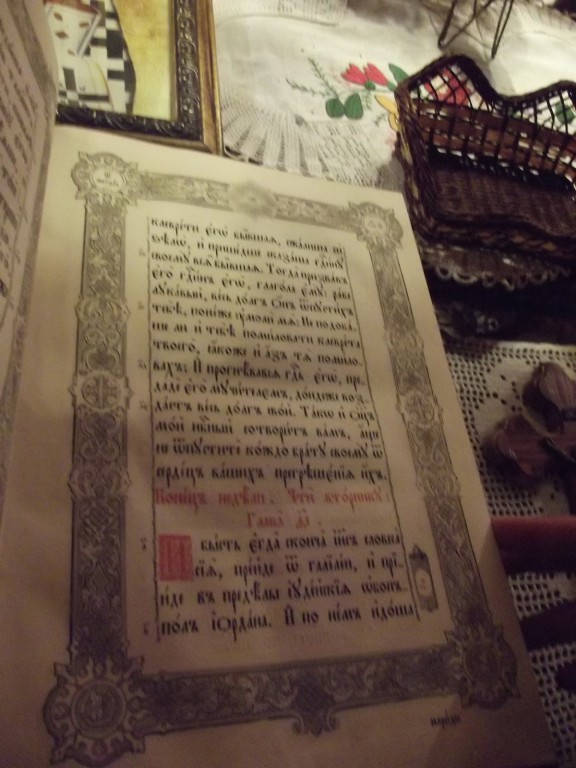 клеврѣти є҆гѡ̀ бы́вшаѧ, сжа́лиша си
ѕѣлѡ̀, и҆ прише́дше сказа́ша господи́нꙋ
своемꙋ̀ всѧ̑ бы̑вшаѧ. Тогда̀ призва́въ
є҆го̀ господи́нъ є҆гѡ̀, глаго́ла є҆мꙋ̀: ра́бе
лꙋка́вый, ве́сь до́лгъ ѻ҆́нъ ѿпꙋсти́хъ
тебѣ̀, поне́же ᲂу҆моли́лъ мѧ̀. Не подоба́
ше ли и҆ тебѣ̀ поми́ловати клевре́та
твоего̀, ꙗ҆́коже и҆ а҆́зъ тѧ̀ поми́ло
вахъ; И҆ прогнѣ́вавсѧ госпо́дь є҆гѡ̀, пре
дадѐ є҆го̀ мꙋчи́телемъ, до́ндеже воз
да́стъ ве́сь до́лгъ сво́й. Та́кѡ и҆ ѻ҆ц҃ъ
мо́й нбⷭ҇ный сотвори́тъ ва́мъ, а҆́ще
не ѿпꙋститѐ кі́йждо бра́тꙋ своемꙋ̀ ѿ
серде́цъ ва́шихъ прегрѣшє́нїѧ и҆́хъ.
Коне́цъ недѣ́ли. Чтѝ вто́рникꙋ.
Глава̀ ѳ҃і.
И҆ бы́сть є҆гда̀ сконча̀ і҆и҃съ словеса̀
сїѧ̑, пре́йде ѿ галїле́и, и҆ прї
и́де въ предѣ́лы і҆ꙋдє́йскїѧ ѡ҆б̾ ѻ҆́нъ
по́лъ і҆ѻрда́на. И҆ по не́мъ и҆до́ша
наро́ди